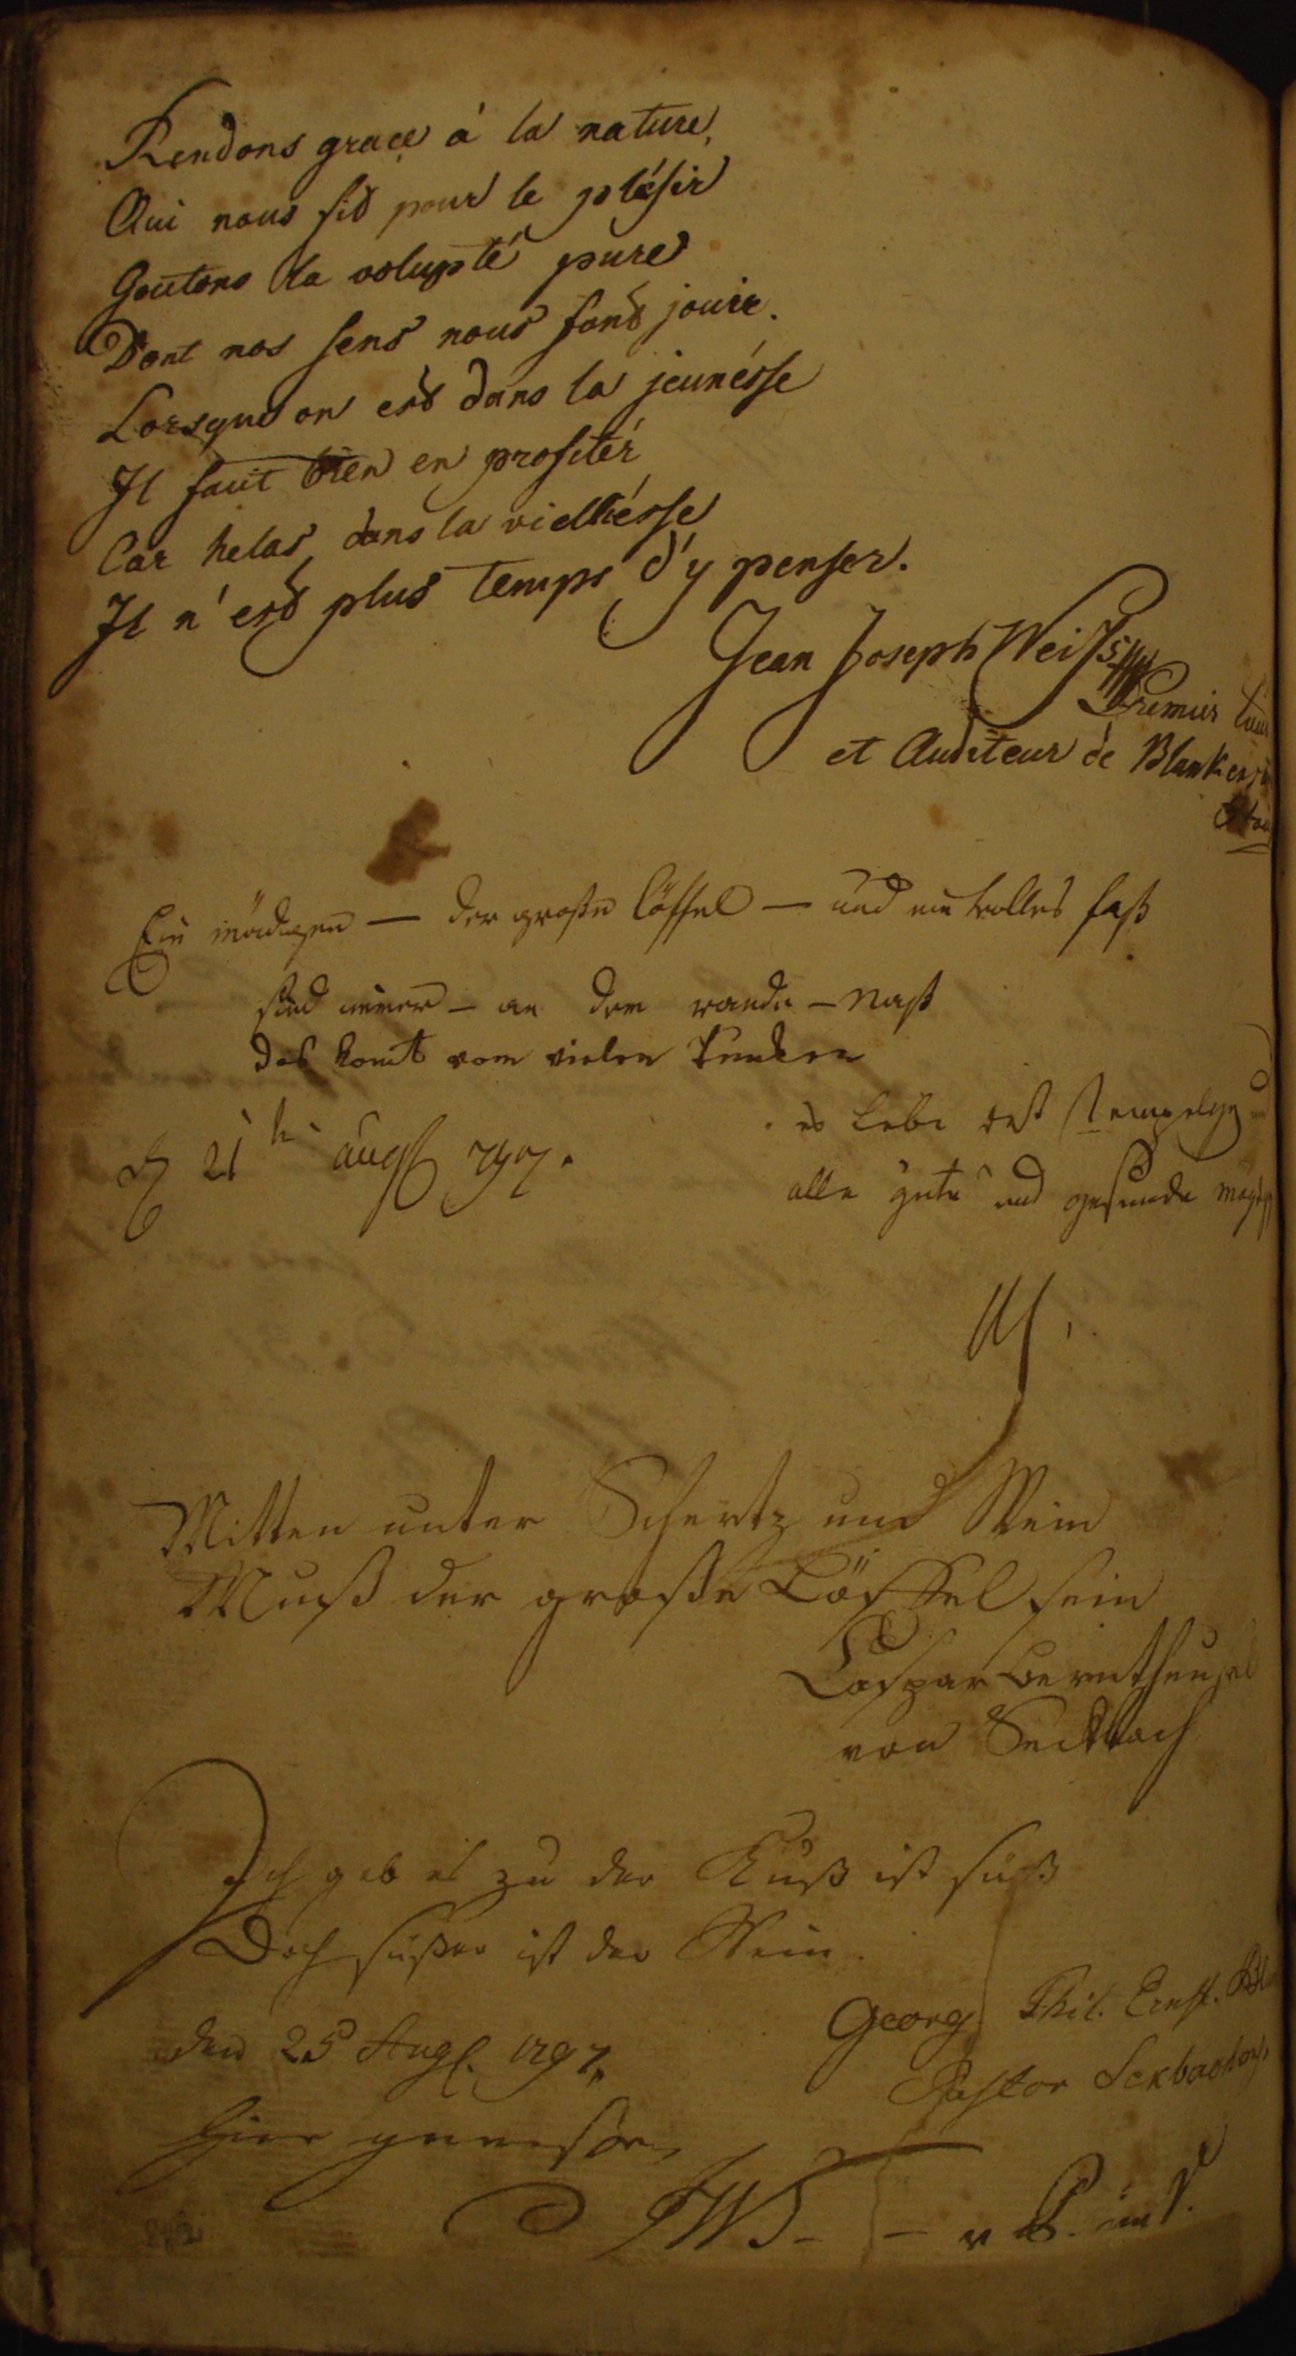 Rendons grace á la nature,
Qui nous fid pour le plésir
Goutons la volupté pure
Dont nos sens nous fond jouir.
Lorsque on esd dans la jeunésse
Il faut bien en profitér
Car helas, dans la vielliésse
Il n'esd plus temps d'y penser.
Jean Joseph Weiss
Premier
et Auditeur de
Ein mädgen — der große Löffel — und ein volles faß
sind immer — an dem rande — Naß
das komt vom vielen Tunken
es Lebe
d 21t augst 797.
alle gute und gesunde
Mitten unter Schertz und Wein
Muß der große Löffel sein
Caspar
von Seckbach
Ich geb es zu der Kuß ist süß
Doch süßer ist der Wein.
Georg Phil. Ernst.
den 25 Aug. 1797.
Pastor
hier gewesen